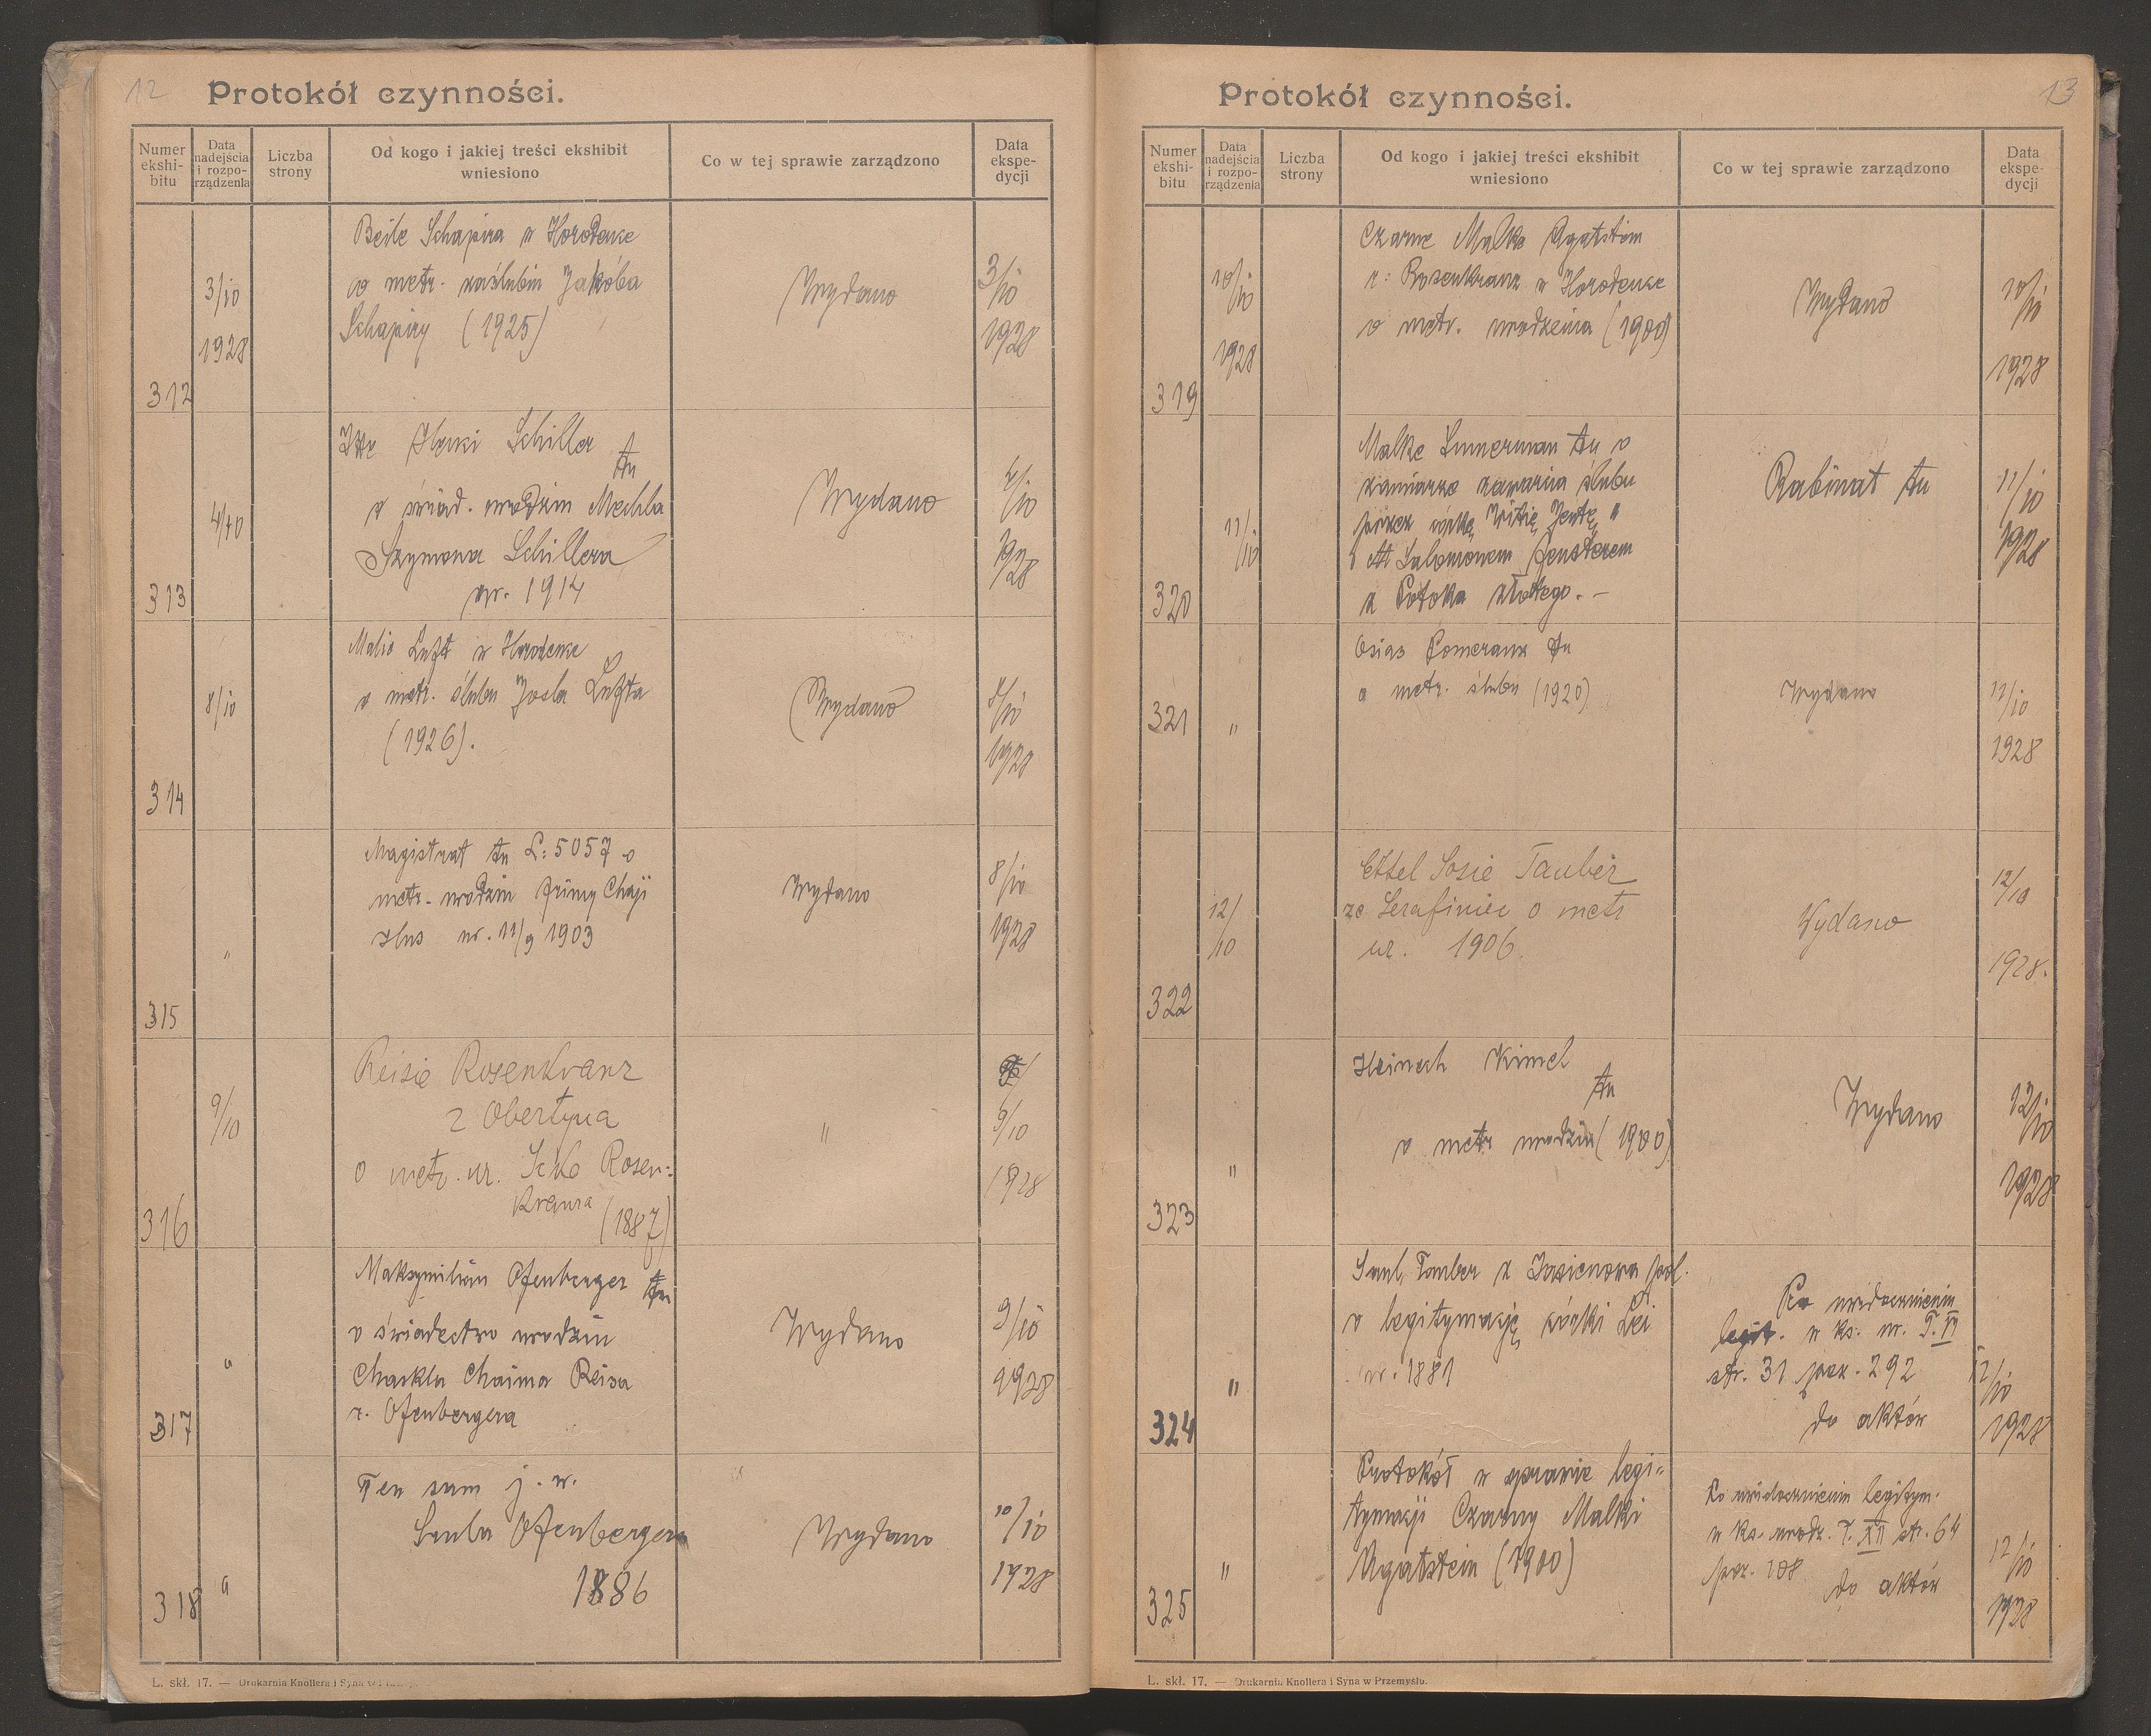 12
Protokół czynności.
Numer ekshi-bitu
Data nadejścia i rozpo-rządzenia
Liczba strony
Od kogo i jakiej treści ekshibit wniesiono
Co w tej sprawie zarządzono
Data ekspe-dycji
Beile Schapira w Horodence
o metr. zaślubin Jakóba
Schapiry (1925)
3/10
1928
Wydano
3/10
1928
312
Schiller tu
o świad. urodzin Mechla
Szymona Schillera
ur. 1914
4/10
Wydano
4/10
1928
313
Luft w Horodence
o metr. ślubu Josla Lufta
(1926).
8/10
Wydano
8/10
1928
314
Magistrat tu L: 5057 o
metr. urodzin Frimy Chaji
ur. 11/9 1903
"
Wydano
8/10
1928
315
Reisie Rosenkranz
z Obertyna
o metr. ur. Icko Rosen=
kranza (1887)
9/10
"
9/10
1928
316
Maksymilian Ofenberger tu
o świadectwo urodzin
Chaskla Chaima Reisa
r. Ofenbergera
"
Wydano
9/10
1928
317
Ten sam j. w.
Saula Ofenbergera
1886
"
Wydano
10/10
1928
318
L. skł. 17. — Drukarnia Knollera i Syna w
13
Protokół czynności.
Numer ekshi-bitu
Data nadejścia i rozpo-rządzenia
Liczba strony
Od kogo i jakiej treści ekshibit wniesiono
Co w tej sprawie zarządzono
Data ekspe-dycji
Czarne Malka Agatstein
r: Rosenkranz w Horodence
o metr. urodzenia (1900)
10/10
1928
Wydano
10/10
1928
319
Malke tu o
zamiarze zawarcia ślubu
przez córkę Jentę "
Salomonem Fensterem
z Potoka złotego. -
11/10
Rabinat tu
11/10
1928
320
Osias Pomeranz tu
o metr. ślubu (1920)
"
Wydano
11/10
1928
321
Ettel Sosie Tauber
ze Serafiniec o metr
ur. 1906.
12/10
Wydano
12/10
1928.
322
Heinech Kimel
tu
o metr urodzin (1900)
"
Wydano
12/10
1928
323
Saul Tauber z Jasienowa pol.
o legitymację córki Lei
ur. 1881
"
Po uwidocznieniu
legit. w ks. ur. T. VI
str. 31 poz. 292
do aktów
12/10
1928
324
Protokół w sprawie legi=
tymacji Czarny Malki
Agatstein (1900)
"
Po uwidocznieniu legitym.
w ks. urodz. T. XI str. 64
poz. 108
do aktów
12/10
1928
325
L. skł. 17. — Drukarnia Knollera i Syna w Przemyślu.